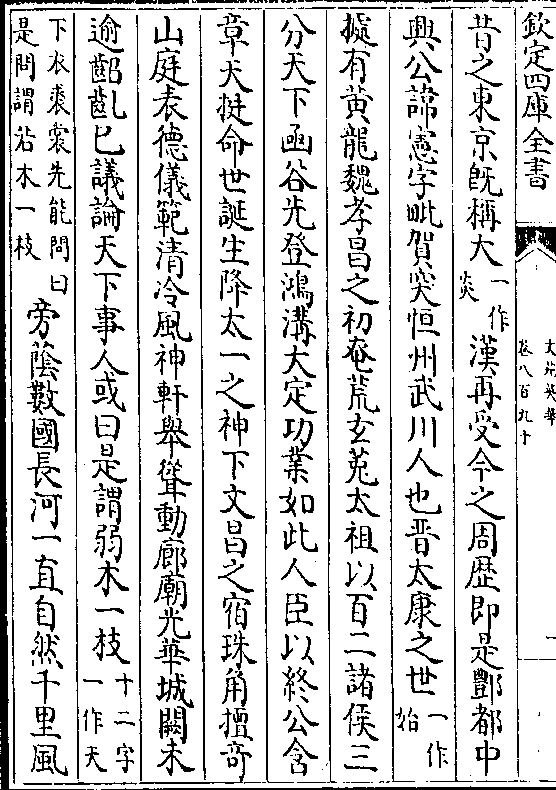 欽定四庫全書
文苑英華
卷八百九十
一
昔之東京既稱大一作炎漢再受今之周歴即是酆都中
興公諱憲字毗賀突恒州武川人也晋太康之世一作始
據有黄龍魏孝昌之初奄荒玄菟太祖以百二諸侯三
分天下函谷先登鴻溝大定功業如此人臣以終公含
章天挺命世誕生降太一之神下文昌之宿珠角擅竒
山庭表德儀範清冷風神軒舉聳動廊廟光華城闕未
逾齠齓已議論天下事人或曰是謂弱木一枝十二字一作天
下衣裘裳先能問曰是問謂沽木一枝旁蔭數國長河一直自然千里風